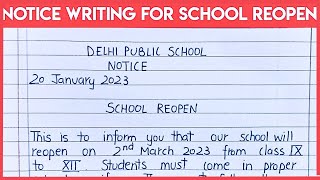 NOTICE WRITING FOR SCHOOL REOPEN
DELHI PUBLIC SCHOOL
NOTICE
20 January 2023
SCHOOL REOPEN
This is to inform you that our school will
reopen on 2nd March 2023 from class IX
to XII. Students must come in proper